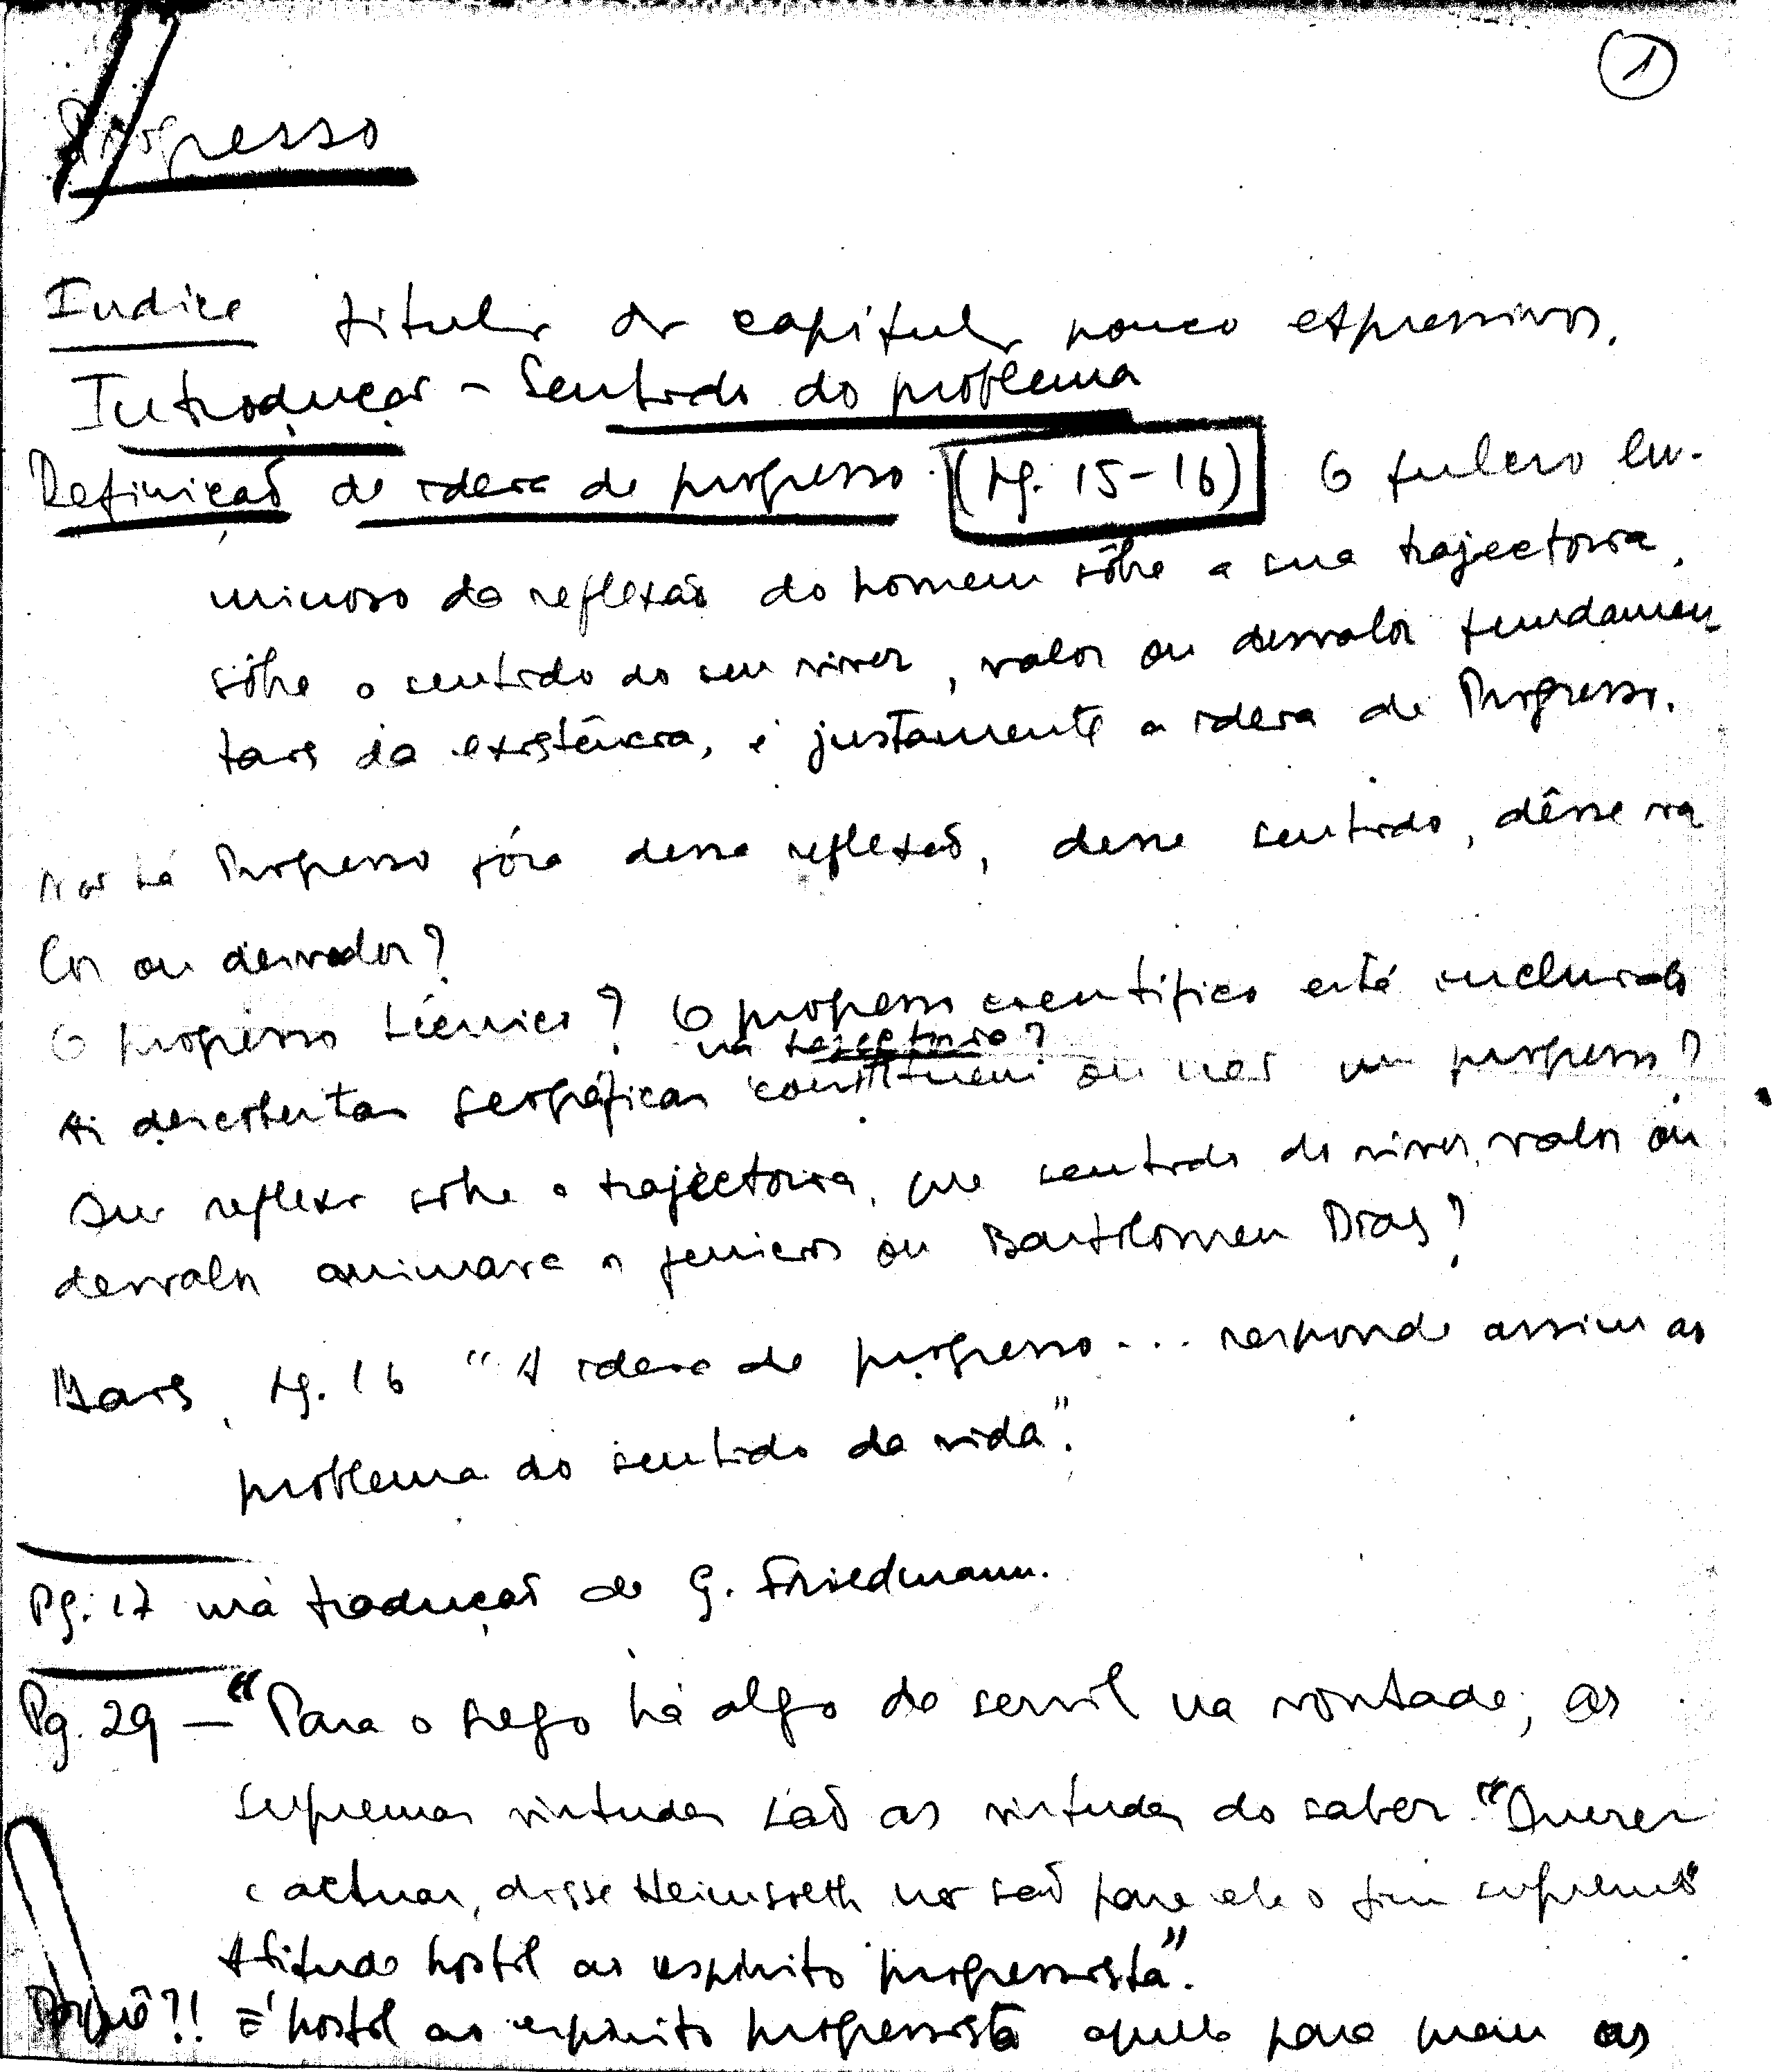 1
Progresso
Indice titulos dos capitulos pouco expressivos.
Introdução - Sentido do problema
Definição de ideia de progresso (pg. 15-16) O fulcro lu-
minoso da reflexão do homem sôbre a sua trajectoria,
sôbre o sentido do seu viver, valor ou desvalor fundamen
tais da existência, é justamente a ideia de Progresso.
Não há Progresso fóra dessa reflexão, desse sentido, dêsse va
lor ou desvalor?
O progresso técnico? O progresso cientifico está incluido
na trajectoria?
As descobertas geográficas constituem ou não um progresso?
Que reflexão sôbre a trajectoria, que sentido de viver, valor ou
desvalor animava os fenicios ou Bartolomeu Dias?
Mais, pg. 16 "A ideia de progresso... responde assim ao
problema do sentido da vida".
Pg. 17 má tradução de G. Friedmann.
Pg. 29 — "Para o grego há algo de servil na vontade; as
supremas virtudes são as virtudes do saber. "Querer
e actuar, disse Heimsoeth não são para ele o fim supremo"
Atitude hostil ao espirito progressista".
Porquê?! É hostil ao espirito progressista aquele para quem as